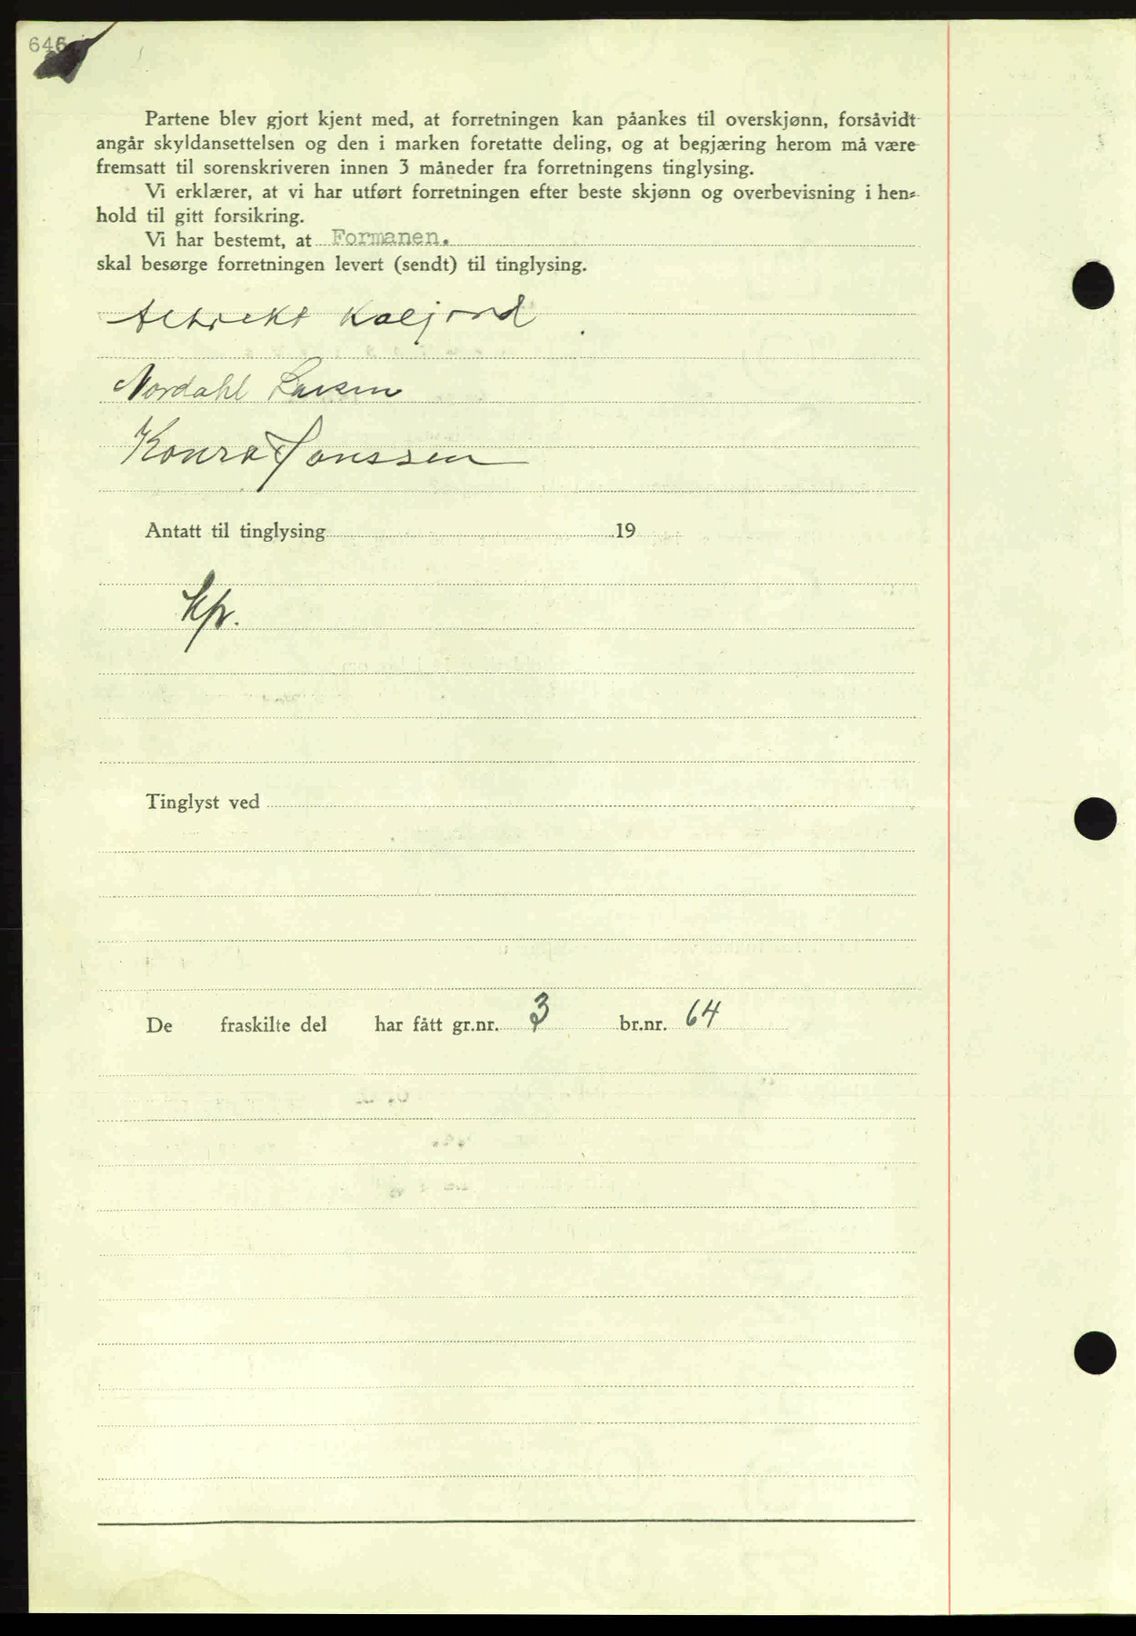 Partene blev gjort kjent med, at forretningen kan påankes til overskjønn, forsåvidt
angår skyldansettelsen og den i marken foretatte deling, og at begjæring herom må være
fremsatt til sorenskriveren innen 3 måneder fra forretningens tinglysing.
Vi erklærer, at vi har utført forretningen efter beste skjønn og overbevisning i hen-
hold til gitt forsikring.
Vi har bestemt, at Formanen.
skal besørge forretningen levert (sendt) til tinglysing.
Kaljord
Nordahl Larsen
Konrad Jonssen
Antatt til tinglysing 19
Tinglyst ved
De fraskilte del har fått gr.nr. 3 br.nr. 64